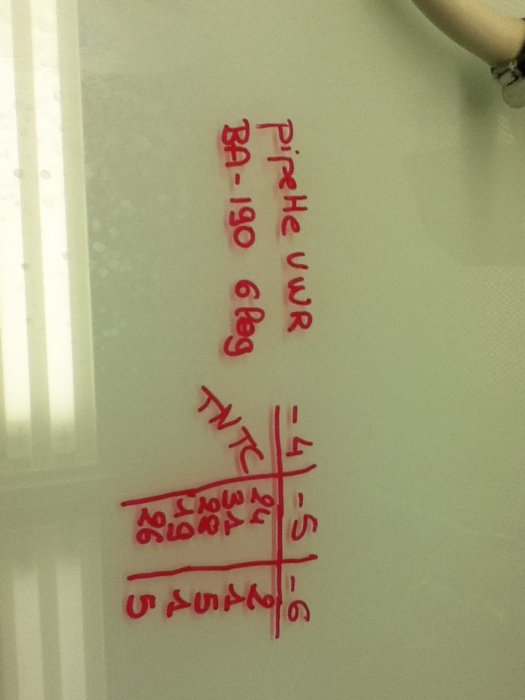 pipette VWR -4 -5 -6
BA-190 24 2
TNTC 31 1
28 5
19 1
26 5